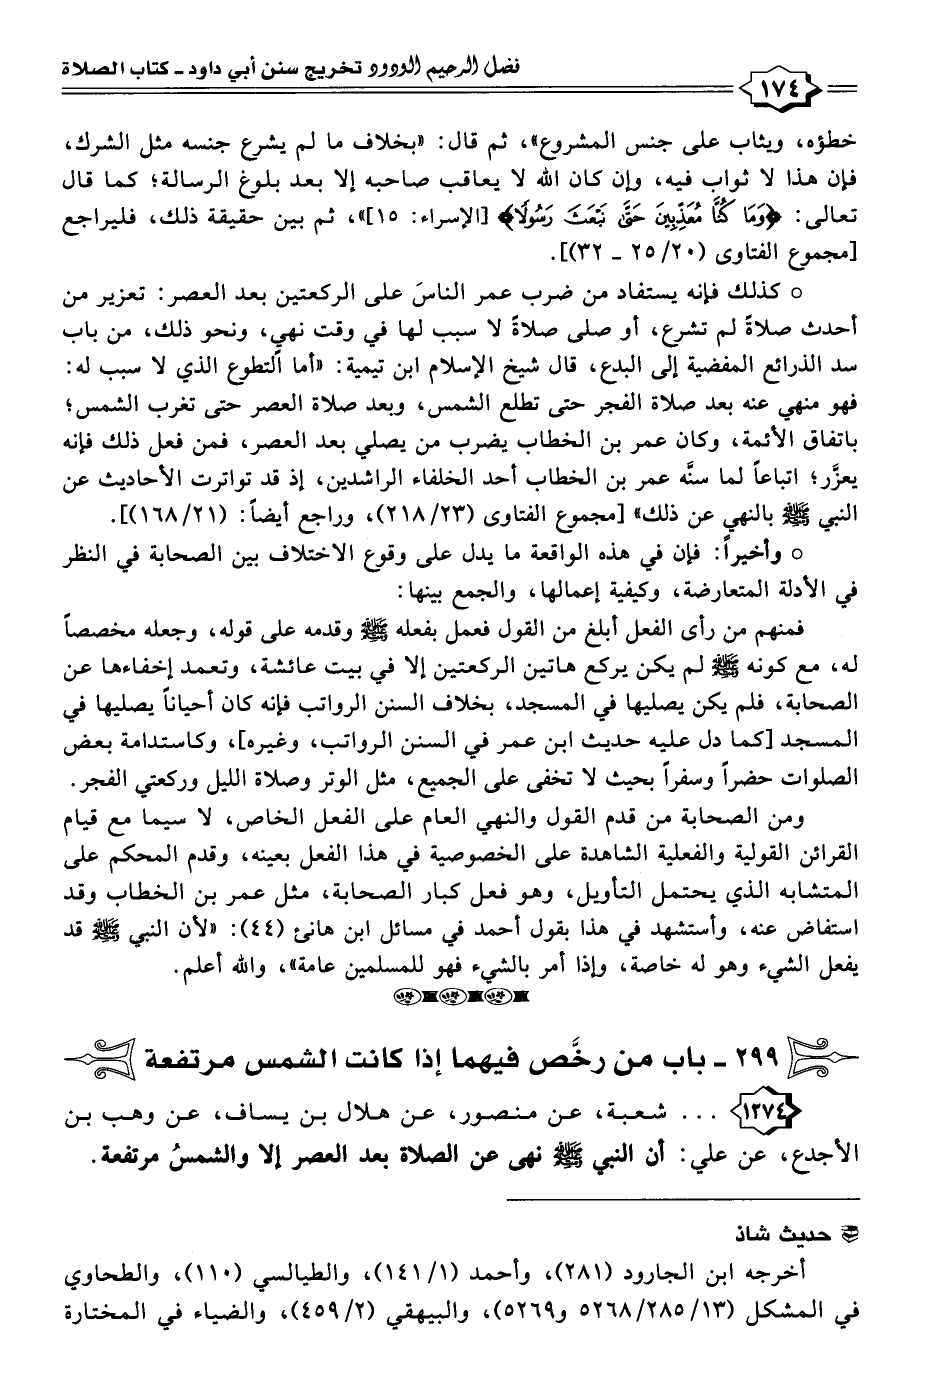 فضل الرحيم الودود تخريج سنن أبي داود - كتاب الصلاة
١٧٤
خطؤه، ويثاب على جنس المشروع»، ثم قال: «بخلاف ما لم يشرع جنسه مثل الشرك،
فإن هذا لا ثواب فيه، وإن كان الله لا يعاقب صاحبه إلا بعد بلوغ الرسالة؛ كما قال
تعالى: ﴿وَمَا كُنَّا مُعَذِّبِينَ حَتَّىٰ نَبْعَثَ رَسُولًا﴾ [الإسراء: ١٥]»، ثم بين حقيقة ذلك، فليراجع
[مجموع الفتاوى (٢٥/٢٠ - ٣٢)].
○ كذلك فإنه يستفاد من ضرب عمر الناسَ على الركعتين بعد العصر: تعزير من
أحدث صلاةً لم تشرع، أو صلى صلاةً لا سبب لها في وقت نهي، ونحو ذلك، من باب
سد الذرائع المفضية إلى البدع، قال شيخ الإسلام ابن تيمية: «أما التطوع الذي لا سبب له:
فهو منهي عنه بعد صلاة الفجر حتى تطلع الشمس، وبعد صلاة العصر حتى تغرب الشمس؛
باتفاق الأئمة، وكان عمر بن الخطاب يضرب من يصلي بعد العصر، فمن فعل ذلك فإنه
يعزَّر؛ اتباعاً لما سنَّه عمر بن الخطاب أحد الخلفاء الراشدين، إذ قد تواترت الأحاديث عن
النبي ﷺ بالنهي عن ذلك» [مجموع الفتاوى (٢١٨/٢٣)، وراجع أيضاً: (١٦٨/٢١)].
○ وأخيراً: فإن في هذه الواقعة ما يدل على وقوع الاختلاف بين الصحابة في النظر
في الأدلة المتعارضة، وكيفية إعمالها، والجمع بينها:
فمنهم من رأى الفعل أبلغ من القول فعمل بفعله ﷺ وقدمه على قوله، وجعله مخصصاً
له، مع كونه ﷺ لم يكن يركع هاتين الركعتين إلا في بيت عائشة، وتعمد إخفاءها عن
الصحابة، فلم يكن يصليها في المسجد، بخلاف السنن الرواتب فإنه كان أحياناً يصليها في
المسجد [كما دل عليه حديث ابن عمر في السنن الرواتب، وغيره]، وكاستدامة بعض
الصلوات حضراً وسفراً بحيث لا تخفى على الجميع، مثل الوتر وصلاة الليل وركعتي الفجر.
ومن الصحابة من قدم القول والنهي العام على الفعل الخاص، لا سيما مع قيام
القرائن القولية والفعلية الشاهدة على الخصوصية في هذا الفعل بعينه، وقدم المحكم على
المتشابه الذي يحتمل التأويل، وهو فعل كبار الصحابة، مثل عمر بن الخطاب وقد
استفاض عنه، وأستشهد في هذا بقول أحمد في مسائل ابن هانئ (٤٤): «لأن النبي ﷺ قد
يفعل الشيء وهو له خاصة، وإذا أمر بالشيء فهو للمسلمين عامة»، والله أعلم.
٢٩٩ - باب من رخَّص فيهما إذا كانت الشمس مرتفعة
١٢٧٤ ... شعبة، عن منصور، عن هلال بن يساف، عن وهب بن
الأجدع، عن علي: أن النبي ﷺ نهى عن الصلاة بعد العصر إلا والشمسُ مرتفعة.
حديث شاذ
أخرجه ابن الجارود (٢٨١)، وأحمد (١٤١/١)، والطيالسي (١١٠)، والطحاوي
في المشكل (٥٢٦٨/٢٨٥/١٣ و٥٢٦٩)، والبيهقي (٤٥٩/٢)، والضياء في المختارة